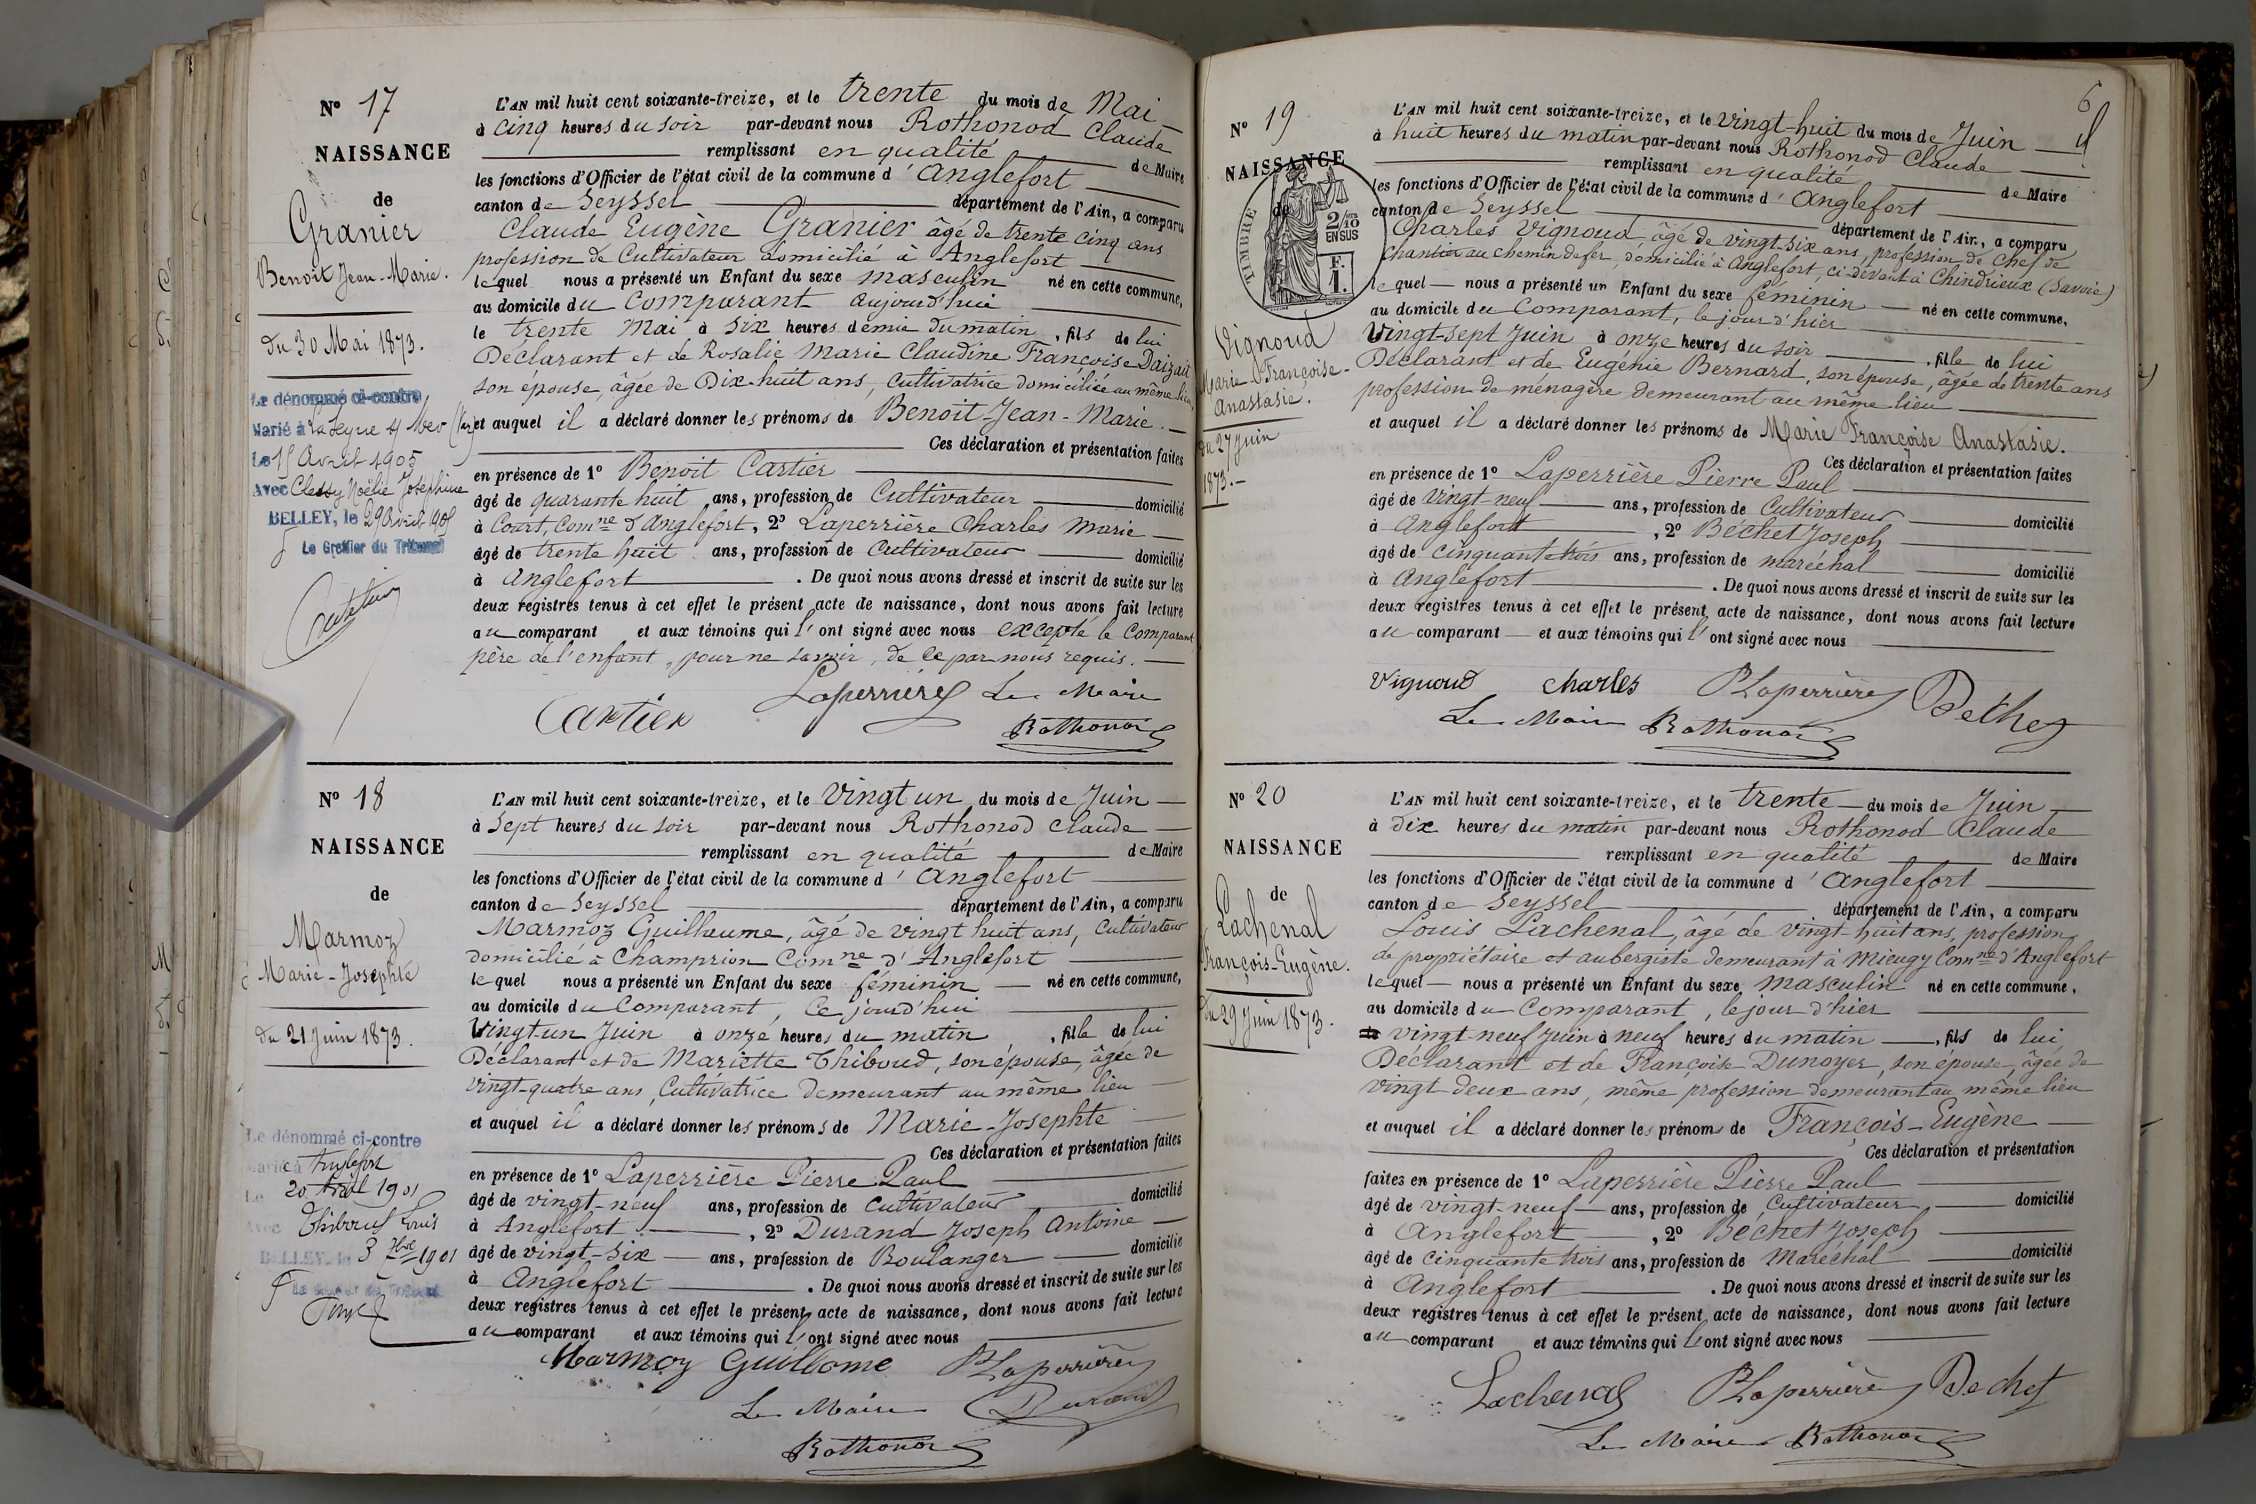 N° 17
NAISSANCE
de
Granier
Benoit Jean-Marie.
du 30 Mai 1873.
Le dénommé ci-contre
Marié à La Seyne s/ Mer (Var)
Le 15 Avril 1905
Avec Clessy Noëlie Joséphine
BELLEY, le 29 Avril 1905
Le Greffier du Tribunal
L'AN mil huit cent soixante-treize, et le trente du mois de Mai
à cinq heures du soir par-devant nous Rothonod Claude
remplissant en qualité de Maire
les fonctions d'Officier de l'état civil de la commune d'Anglefort
canton de Seyssel département de l'Ain, a comparu
Claude Eugène Granier âgé de trente cinq ans
profession de Cultivateur domicilié à Anglefort
lequel nous a présenté un Enfant du sexe masculin né en cette commune,
au domicile du Comparant aujourd'hui
le trente Mai à six heures demie du matin, fils de lui
Déclarant et de Rosalie Marie Claudine Françoise Daizait
son épouse, âgée de Dix-huit ans, Cultivatrice domiciliée au même lieu,
et auquel il a déclaré donner les prénoms de Benoit-Jean-Marie.
Ces déclaration et présentation faites
en présence de 1° Benoit Cartier
âgé de quarante huit ans, profession de Cultivateur domicilié
à Court, Comne d'Anglefort, 2° Laperrière Charles Marie
âgé de trente huit ans, profession de Cultivateur domicilié
à Anglefort. De quoi nous avons dressé et inscrit de suite sur les
deux registres tenus à cet effet le présent acte de naissance, dont nous avons fait lecture
au comparant et aux témoins qui l'ont signé avec nous excepté le Comparant
père de l'enfant, pour ne savoir, de ce par nous requis.
Cartier Laperrière Le Maire
Rothonod
N° 18
NAISSANCE
de
Marmoz
Marie-Josephte
du 21 Juin 1873.
Le dénommé ci-contre
Marié à Anglefort
Le 20 Avril 1901
Avec Thiboud Louis
BELLEY, le 3 1901
L'AN mil huit cent soixante-treize, et le Vingt un du mois de Juin
à Sept heures du soir par-devant nous Rothonod Claude
remplissant en qualité de Maire
les fonctions d'Officier de l'état civil de la commune d'Anglefort
canton de Seyssel département de l'Ain, a comparu
Marmoz Guilheume, âgé de vingt huit ans, Cultivateur
domicilié à Champrion Comne d'Anglefort
lequel nous a présenté un Enfant du sexe féminin né en cette commune,
au domicile du Comparant, Ce jourd'hui
Vingt-un Juin à onze heures du matin, fille de lui
Déclarant et de Mariette Thiboud, son épouse, âgée de
vingt-quatre ans, Cultivatrice demeurant au même lieu
et auquel il a déclaré donner les prénoms de Marie-Josephte
Ces déclaration et présentation faites
en présence de 1° Laperrière Pierre Paul
âgé de vingt-neuf ans, profession de cultivateur domicilié
à Anglefort, 2° Durand Joseph Antoine
âgé de vingt-six ans, profession de Boulanger domicilié
à Anglefort. De quoi nous avons dressé et inscrit de suite sur les
deux registres tenus à cet effet le présent acte de naissance, dont nous avons fait lecture
au comparant et aux témoins qui l'ont signé avec nous
Marmoz Guillome PLaperrière
Le Maire Durand
Rothonod
6
N° 19
NAISSANCE
de
TIMBRE
2/10 EN SUS
F. 1.
Vignoud
Marie-Françoise-
Anastasie.
du 27 Juin
1873.
L'AN mil huit cent soixante-treize, et le vingt-huit du mois de Juin
à huit heures du matin par-devant nous Rothonod Claude
remplissant en qualité de Maire
les fonctions d'Officier de l'état civil de la commune d'Anglefort
canton de Seyssel département de l'Ain, a comparu
Charles Vignoud âgé de vingt-six ans, profession de Chef de
Chantier au chemin de fer, domicilié à Anglefort, ci-devant à Chindrieux (Savoie)
lequel nous a présenté un Enfant du sexe féminin né en cette commune,
au domicile du Comparant, le jour d'hier
Vingt-sept Juin à onze heures du soir, fille de lui
Déclarant et de Eugénie Bernard, son épouse, âgée de trente ans
profession de ménagère demeurant au même lieu
et auquel il a déclaré donner les prénoms de Marie Françoise Anastasie.
Ces déclaration et présentation faites
en présence de 1° Laperrière Pierre Paul
âgé de vingt-neuf ans, profession de Cultivateur domicilié
à Anglefort, 2° Béchet Joseph
âgé de cinquante trois ans, profession de maréchal domicilié
à Anglefort. De quoi nous avons dressé et inscrit de suite sur les
deux registres tenus à cet effet le présent acte de naissance, dont nous avons fait lecture
au comparant et aux témoins qui l'ont signé avec nous
Vignoud charles PLaperrière Bechet
Le Maire Rothonod
N° 20
NAISSANCE
de
Lachenal
François-Eugène.
du 29 Juin 1873.
L'AN mil huit cent soixante-treize, et le trente du mois de Juin
à Dix heures du matin par-devant nous Rothonod Claude
remplissant en qualité de Maire
les fonctions d'Officier de l'état civil de la commune d'Anglefort
canton de Seyssel département de l'Ain, a comparu
Louis Lachenal, âgé de vingt huit ans, profession
de propiétaire et aubergiste demeurant à Mieugy Comne d'Anglefort
lequel nous a présenté un Enfant du sexe masculin né en cette commune,
au domicile du Comparant, le jour d'hier
vingt-neuf Juin à neuf heures du matin, fils de lui
Déclarant et de Françoise Dunoyer, son épouse, âgée de
vingt deux ans, même profession demeurant au même lieu
et auquel il a déclaré donner les prénoms de François-Eugène
Ces déclaration et présentation
faites en présence de 1° Laperrière Pierre Paul
âgé de vingt-neuf ans, profession de Cultivateur domicilié
à Anglefort, 2° Béchet Joseph
âgé de cinquante trois ans, profession de Maréchal domicilié
à Anglefort. De quoi nous avons dressé et inscrit de suite sur les
deux registres tenus à cet effet le présent acte de naissance, dont nous avons fait lecture
au comparant et aux témoins qui l'ont signé avec nous
Lachenal PLaperrière Bechet
Le Maire Rothonod